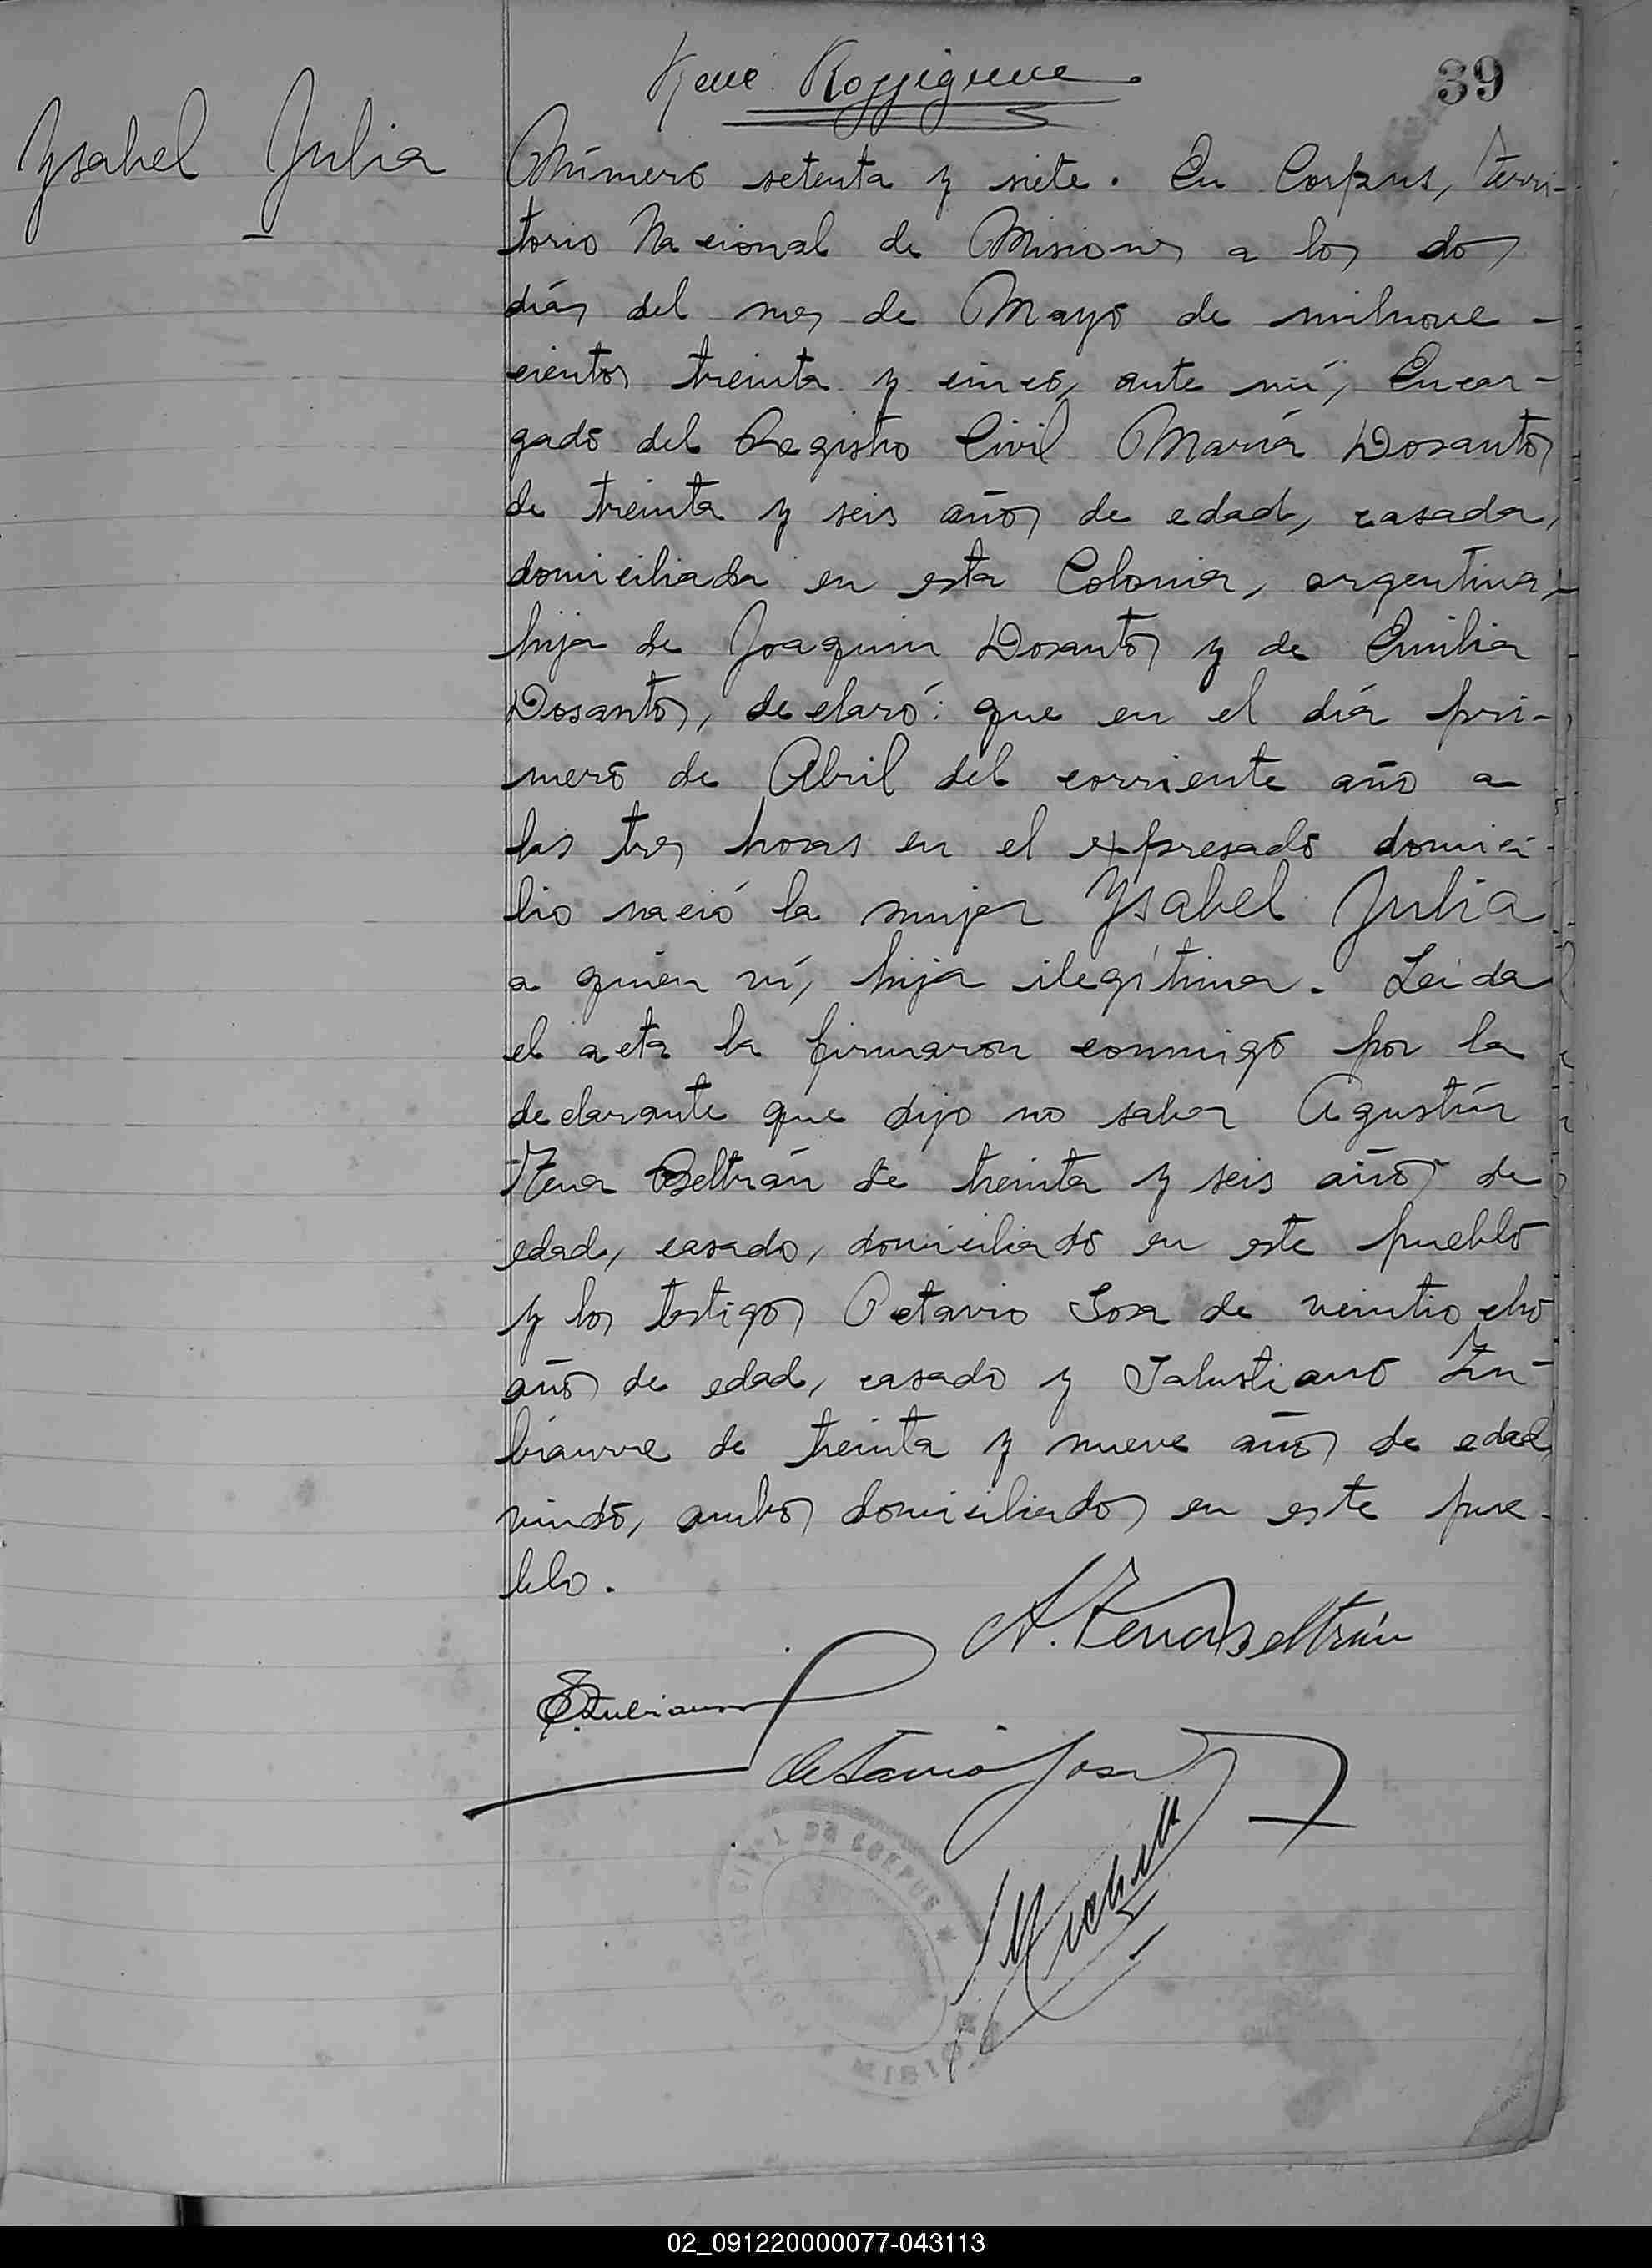 39
Ysabel Julia
Número setenta y siete. En Corpus, Terri-
torio Nacional de Misiones a los dos
días del mes de Mayo de milnove-
cientos treinta y cinco, ante mí, Encar-
gado del Registro Civil María Dosantos
de treinta y seis años de edad, casada,
domiciliada en esta Colonia, argentina,
hija de Joaquin Dosantos y de Emilia
Dosantos, declaró: que en el día pri-
mero de Abril del corriente año a
las tres horas en el expresado domici-
lio nació la mujer Ysabel Julia
a quien ví, hija ilegítima. Leida
el acta la firmaron conmigo por la
declarante que dijo no saber Agustín
Tena Beltrán de treinta y seis años de
edad, casado, domiciliado en este pueblo
y los testigos Octavio Sosa de veintiocho
años de edad, casado y Salustiano Zu-
biaurre de treinta y nueve años de edad,
viudo, ambos domiciliados en este pue-
blo.
A. Tena Beltrán
Octavio Sosa
CIVIL DE CORPUS
02_091220000077-043113